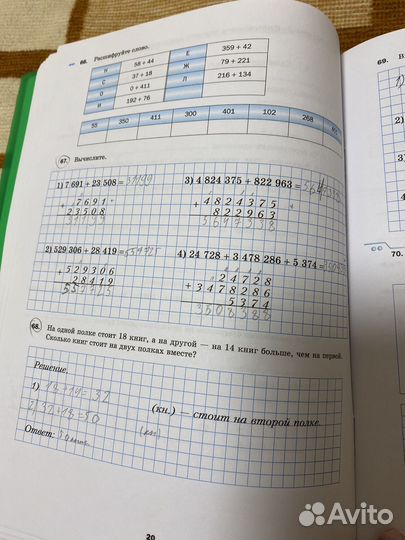 66. Расшифруйте слово.
Н 58 + 44 Е 359 + 42
С 37 + 18 Ж 79 + 221
О 0 + 411 Л 216 + 134
И 192 + 76
55 350 411 300 401 102 268
67. Вычислите.
1) 7 691 + 23 508 = 31199
+ 7691
23508
31199
3) 4 824 375 + 822 963 =
+ 4824375
822963
5647338
2) 529 306 + 28 419 = 557725
+ 529306
28419
557725
4) 24 728 + 3 478 286 + 5 374 =
24728
+ 3478286
5374
3508388
68. На одной полке стоит 18 книг, а на другой — на 14 книг больше, чем на первой.
Сколько книг стоит на двух полках вместе?
Решение.
1) 18+14=32 (кн.) — стоит на второй полке.
2) 32+18=50 (кн)
Ответ:
20
69.
1)
2)
3)
4)
70.
Avito